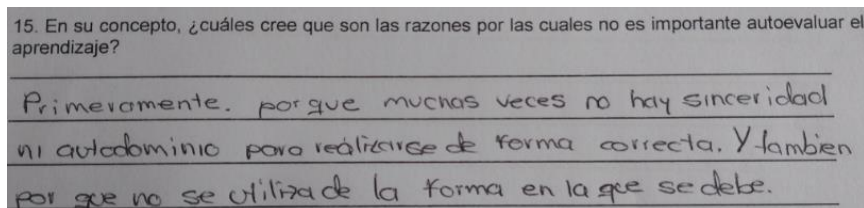 15. En su concepto, ¿cuáles cree que son las razones por las cuales no es importante autoevaluar el
aprendizaje?
Primeramente. porque muchas veces no hay sinceridad
ni autodominio para realizarse de forma correcta. Y tambien
por que no se utiliza de la forma en la que se debe.